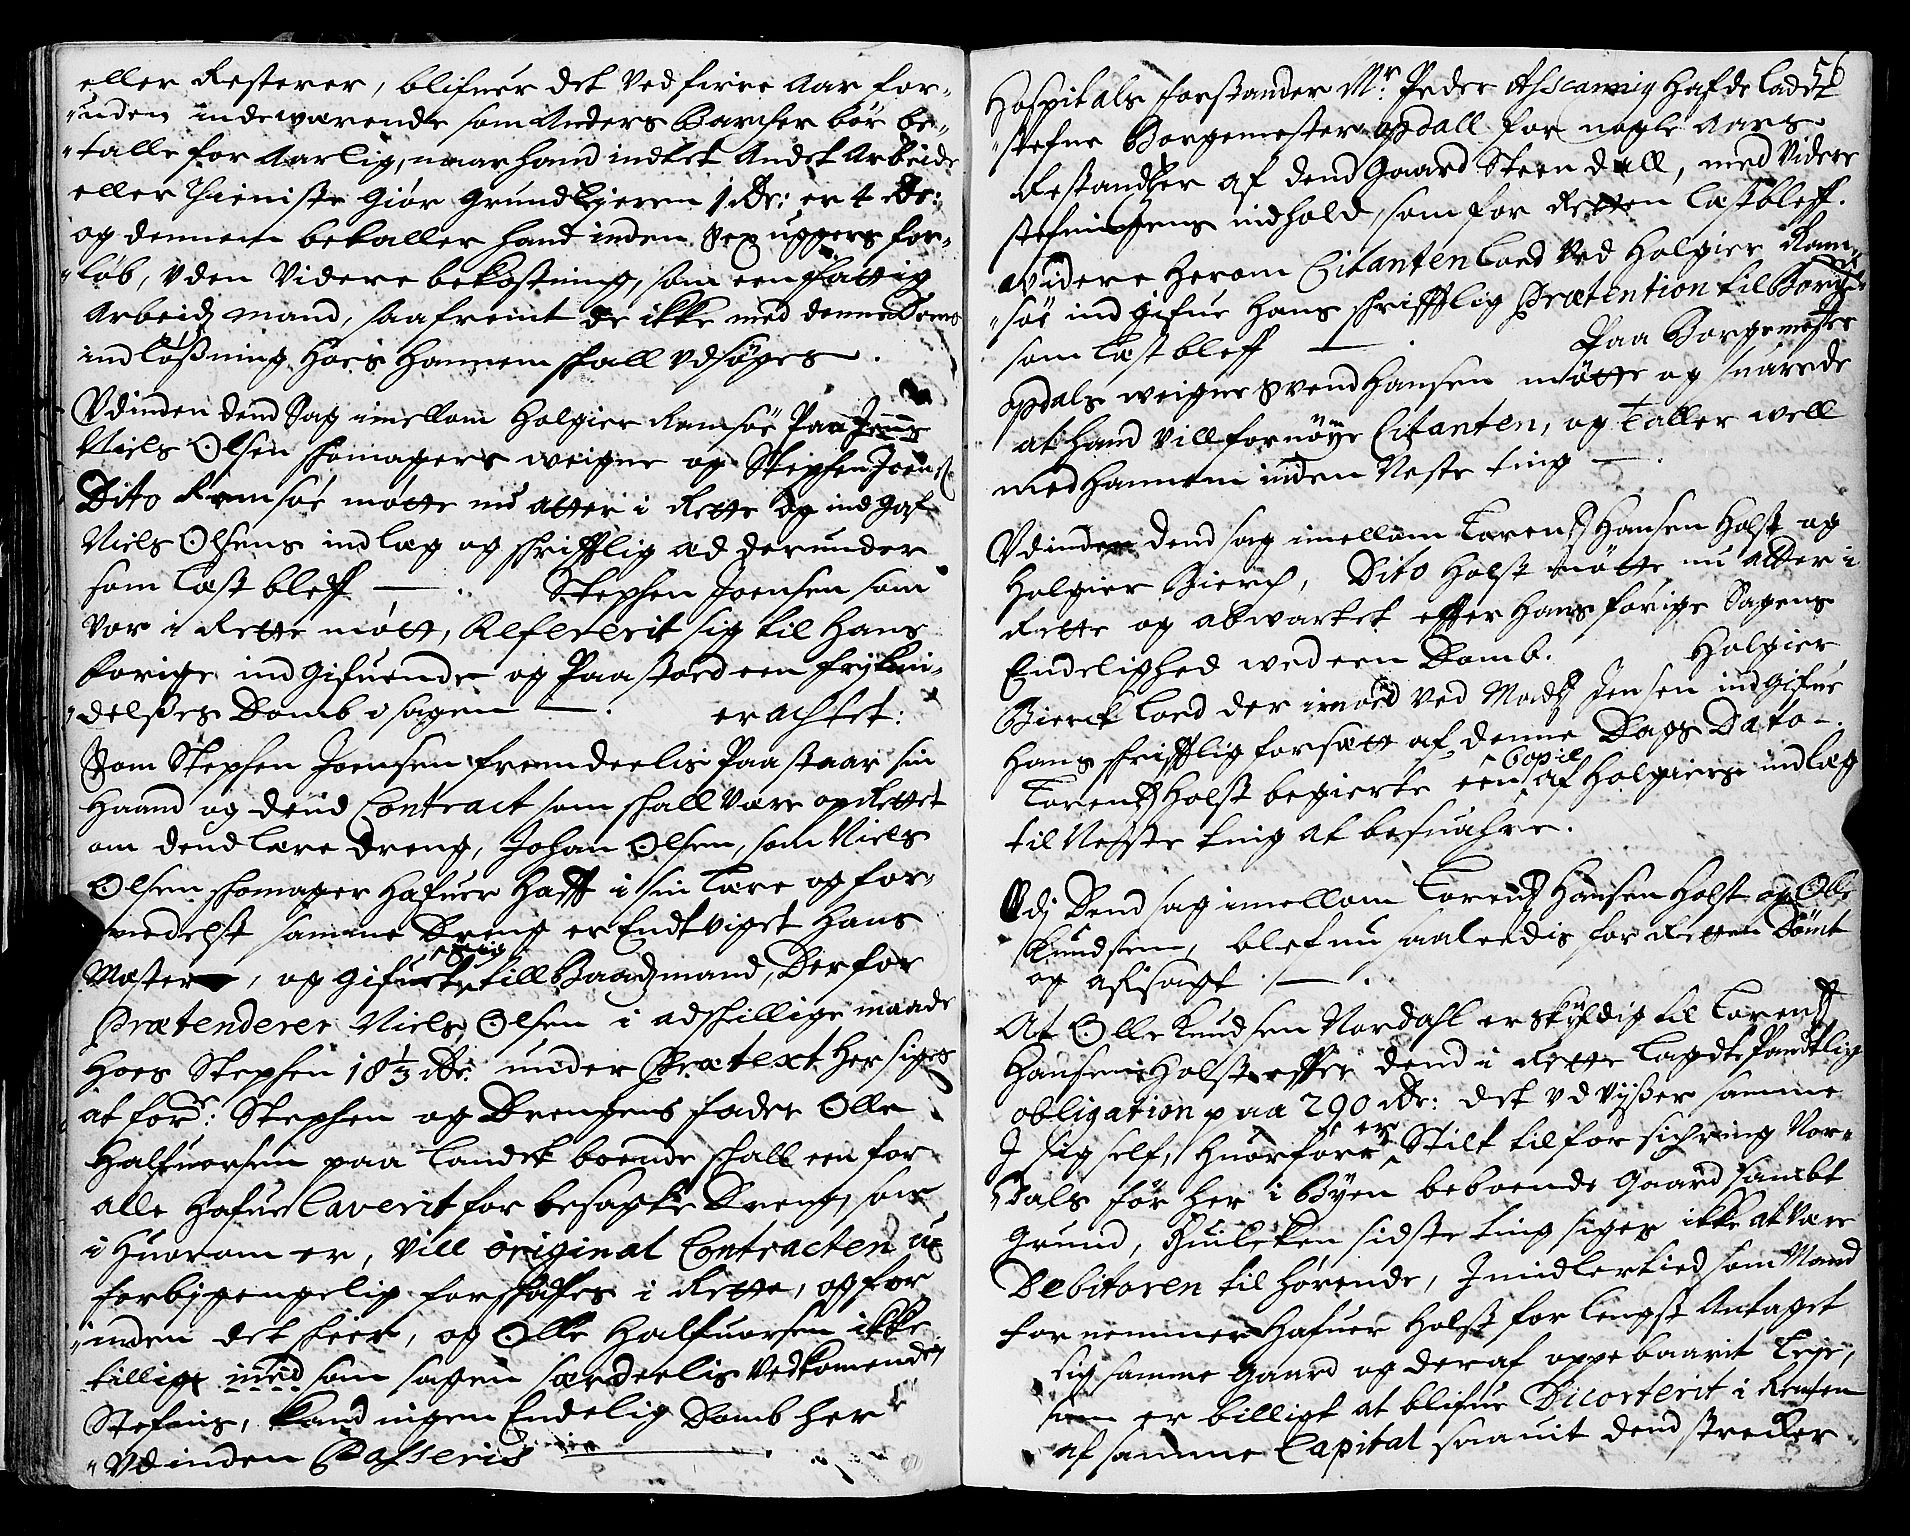 eller Resterer, blifuer det Ved firre Aar for-
-uden indeværende som Anders Barcher bör be-
-talle for Aarlig, naar hand indtet Andet Arbeide
eller Thieniste Giör Grundejeren 1 Rdr: er 4 Rdr:
og dennem betaller hand inden Sex uggers for-
-löb, Vden Videre bekostning, som een fattig
Arbeidz mand, saafremt de ikke med denne Doms
indlößning hoes hannem schall Vdsöges.
Vdinden dend Sag imellom Holgier Ramsöe Paa
Niels Olsen Schomagers weigne og Stephen Joens:
Dito Ramsöe mötte nu atter i Rette og indgaf
Niels Olsens indlæg og schrifftlig ad derunder
som læst bleff —. Stephen Joensen som
Vor i Rette mött, Refererit sig til hans
forige indgifuende og Paastoed een frjkin-
-delßes Domb i sagen —. erachtet:
Som Stephen Joensen fremdeelis Paastaar sin
Haand og dend Contract som schall være opRettet
om dend lære dreng, Johan Olsen, som Niels
Olsen schomager hafuer hafft i sin Lære og for-
medelst samme Dreng er Endtviget hans
Mæster, og gifuet sig till Baadzmand, Derfor
Prætenderer Niels Olsen i adschillige maade
hoes Stephen 18⅓ Rdr: under Prætext her siges
at for: Stephen og Drengens fader Olle
Halfuorsen paa Landet boende schall een for
alle hafue Caverit for besagte Dreng, som
i huorom er, Vill original Contracten u-
forbjgengelig forschaffes i Rette, og for
-inden det scheer, og Olle Halfuorsen ikke
tillige med som sagen særdeelis Vedkomende
Stefnis, kand ingen Endelig Domb her
-Vdinden Passeris —
56
Hospitals forstander Mr: Peder Aschanius hafde ladet
-stefne Borgemester Opdall for nogle Aars
Restandtzer af dend Gaard Steendall, med Videre
stefningens indhold, som for Retten læst bleff.
Videre herom Citanten loed Ved Holgier Ram-
-söe indgifue hans schrifftlig Prætention til Borge-
som læst bleff —. Paa Borgemester
Opdals weigne Svend Hansen mötte og suarede
at hand Vill fornöye Citanten, og taller well
med hannem inden Neste ting —.
Vdinden dend sag imellom Lorentz Hansen Holst og
Holgier Bierch, Dito Holst mötte nu atter i
Rette og abwartet effter hans forige Sagens
Endelighed wed een Domb. Holgier
Bierck loed der imoed Ved Madtz Jensen indgifue
hans schrifftlig forsætt af denne Dags Dato —.
Lorentz Holst begierte een Copie af Holgiers indlæg
til Neste ting at besuahre.
Vdj Dend sag imellom Lorentz Hansen Holst og Olle
Knudsen, blef nu saaleedis for Retten Dömt
og afsagt —.
At Olle Knudsen Nordahl er skyldig til Lorentz
Hansen Holst effter dend i Rette lagdte Pandtlig
obligation paa 290 Rdr: det Vdvjßer samme
I sig self, huorfore er Stilt til forsichring Nor-
-dals för her i Byen beboende Gaard sambt
Grund, Huilcken sidste ting siges ikke at være
Debitoren tilhörende, Imidlertied som Mand
fornemmer hafuer Holst for lengst Antaget
sig samme Gaard og deraf oppebaarit Leje,
som er billigt at blifue Dicorterit i Renten
af samme Capital saauit dend strecker